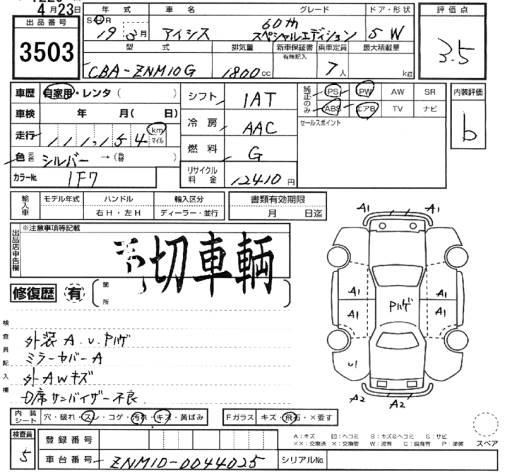 4月23日
出品番号 3503
年式 19年3月 車名 アイシス グレード 60th スペシャルエディション ドア・形状 5W
型式 CBA-ZNM10G 排気量 1800cc 新車保証書 有無記入 乗車定員 7人 最大積載量 kg
評価点 3.5
車歴 自家用・レンタ( ) シフト IAT 純正のみ PS PW AW SR 内装評価 b
ABS エアB TV ナビ
車検 年 月( 日) 冷房 AAC セールスポイント
走行 111,154 km マイル
色 元色 シルバー →(替) 燃料 G
カラーNo. 1F7 リサイクル料金 12410円
輸入車 モデル年式 ハンドル 右H・左H 輸入区分 ディーラー・並行 書類有効期限 月 日迄
出品店申告欄 ※注意事項等記載
切車輌
修復歴 有 箇所
検査員記入欄
外装A.U.ハゲ
ミラーカバーA
外AWキズ
D席サンバイザー不良
A1 A1
A1 ハゲ A1
A1 A1
U1
A2 A2
スペア
内装シート 穴・破れ・スレ・コゲ・汚れ・キズ・黄ばみ Fガラス キズ・飛石・×要す
検査員 5 登録番号
車台番号 ZNM10-0044025 シリアルNo.
A:キズ